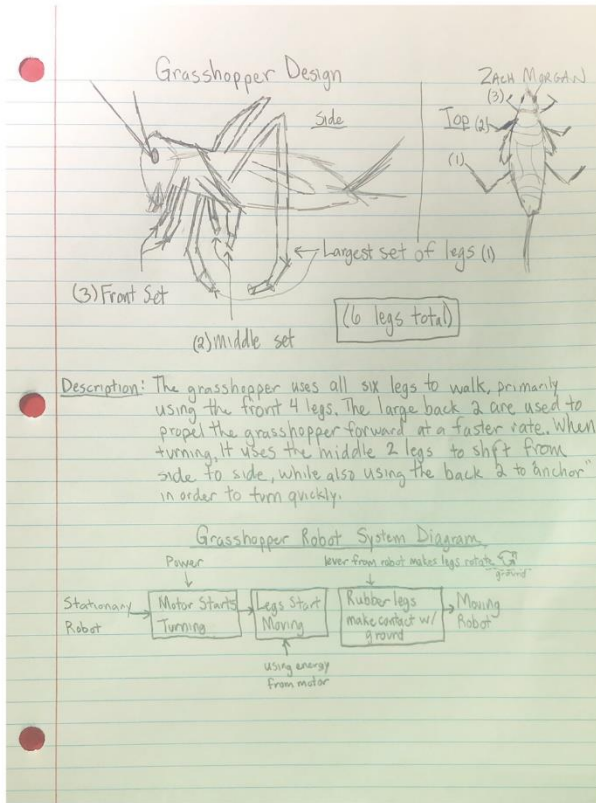 Grasshopper Design
ZACH MORGAN
Side
Top
(3)
(2)
(1)
Largest set of legs (1)
(3) Front Set
(2) middle set
(6 legs total)
Description: The grasshopper uses all six legs to walk, primarily
using the front 4 legs. The large back 2 are used to
propel the grasshopper forward at a faster rate. When
turning, It uses the middle 2 legs to shft from
side to side, while also using the back 2 to "anchor"
in order to turn quickly.
Grasshopper Robot System Diagram
Power
lever from robot makes legs rotate
"ground"
Stationary
Robot
Motor Starts
Turning
Legs Start
Moving
Rubber legs
make contact w/
ground
Moving
Robot
using energy
from motor